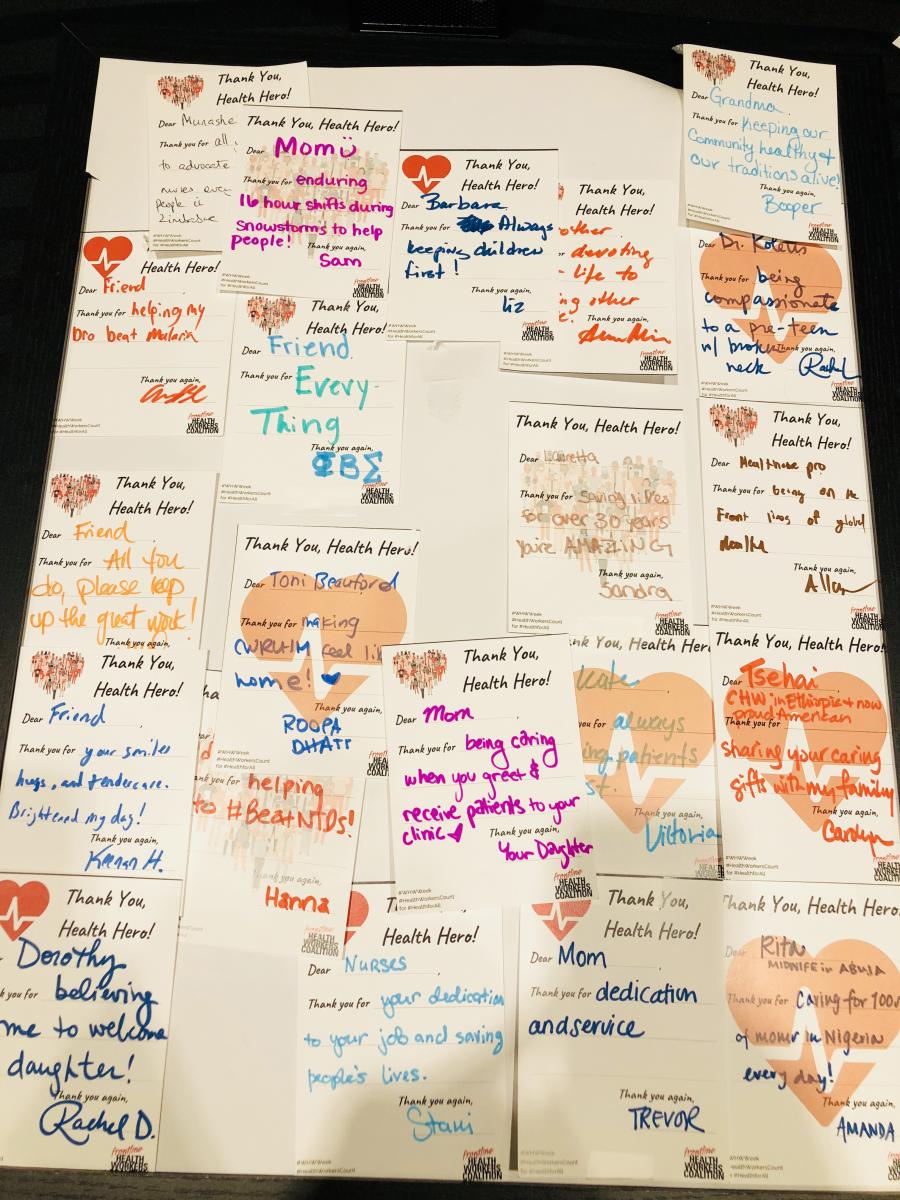 Thank You,
Health Hero!
Dear Munashe
Thank you for all
to advocate
nurses every
people in
Zimbabwe
Thank You, Health Hero!
Dear Mom
Thank you for enduring
16 hour shifts during
snowstorms to help
people!
Thank you again,
Sam
frontline
HEALTH
WORKERS
COALITION
Thank You,
Health Hero!
Dear Barbara
Thank you for Always
keeping children
first!
Thank you again,
Liz
frontline
HEALTH
WORKERS
COALITION
Thank You,
Health Hero!
other
devoting
life to
other
Thank you again,
frontline
HEALTH
WORKERS
COALITION
Thank You,
Health Hero!
Dear Grandma
Thank you for Keeping our
Community healthy &
our traditions alive!
Thank you again,
Booper
Thank You,
Health Hero!
Dear Friend
Thank you for helping my
Bro beat Malaria
Thank you again,
#WHWWeek
#HealthWorkersCount
for #HealthforAll
frontline
HEALTH
WORKERS
COALITION
Thank You,
Health Hero!
Dear Friend
Thank you for Every-
Thing
Thank you again,
ΦΒΣ
#WHWWeek
#HealthWorkersCount
for #HealthforAll
frontline
HEALTH
WORKERS
COALITION
Dear Dr.
Thank you for being
compassionate
to a pre-teen
w/ broken
neck
Thank you again,
Rachel
#WHWWeek
#HealthWorkersCount
for #HealthforAll
frontline
HEALTH
WORKERS
COALITION
Thank You,
Health Hero!
Dear Friend
Thank you for All you
do, please keep
up the great work!
Thank you again,
Thank You, Health Hero!
Dear Toni Beauford
Thank you for making
feel
home!
Thank you again,
ROOPA
DHATT
Thank You, Health Hero!
Dear Lauretta
Thank you for Saving lives
for over 30 years
You're AMAZING
Thank you again,
Sandra
#WHWWeek
#HealthWorkersCount
for #HealthforAll
frontline
HEALTH
WORKERS
COALITION
Thank You,
Health Hero!
Dear Healthcare pro
Thank you for being on the
Front lines of global
health
Thank you again,
Allan
#WHWWeek
#HealthWorkersCount
for #HealthforAll
frontline
HEALTH
WORKERS
COALITION
Thank You,
Health Hero!
Dear Friend
Thank you for your smiles
hugs, and tendercare.
Brightened my day!
Thank you again,
Keenan H.
helping
to #BeatNTDs!
Thank you again,
Hanna
frontline
HEALTH
WORKERS
COALITION
Thank You,
Health Hero!
Dear Mom
Thank you for being caring
when you greet &
receive patients to your
clinic
Thank you again,
Your Daughter
#WHWWeek
#HealthWorkersCount
for #HealthforAll
frontline
HEALTH
WORKERS
COALITION
Thank You, Health Hero!
you for always
patients
Thank you again,
Victoria
Thank You, Health Hero!
Dear Tsehai
CHW in Ethiopia & now
proud American
Thank you for
sharing your caring
gifts with my family
Thank you again,
Carolyn
#WHWWeek
#HealthWorkersCount
for #HealthforAll
frontline
HEALTH
WORKERS
COALITION
Thank You,
Health Hero!
Dorothy
you for believing
me to welcome
daughter!
Thank you again,
Rachel D.
frontline
HEALTH
WORKERS
COALITION
Health Hero!
Dear Nurses
Thank you for your dedication
to your job and saving
people's lives.
Thank you again,
Staci
#WHWWeek
#HealthWorkersCount
for #HealthforAll
frontline
HEALTH
WORKERS
COALITION
Thank You,
Health Hero!
Dear Mom
Thank you for dedication
and service
Thank you again,
TREVOR
#WHWWeek
#HealthWorkersCount
for #HealthforAll
frontline
HEALTH
WORKERS
COALITION
Thank You, Health Hero!
Dear Rita
MIDWIFE in ABUJA
Thank you for Caring for 100s
of moms in Nigeria
every day!
Thank you again,
AMANDA
#WHWWeek
#HealthWorkersCount
for #HealthforAll
frontline
HEALTH
WORKERS
COALITION